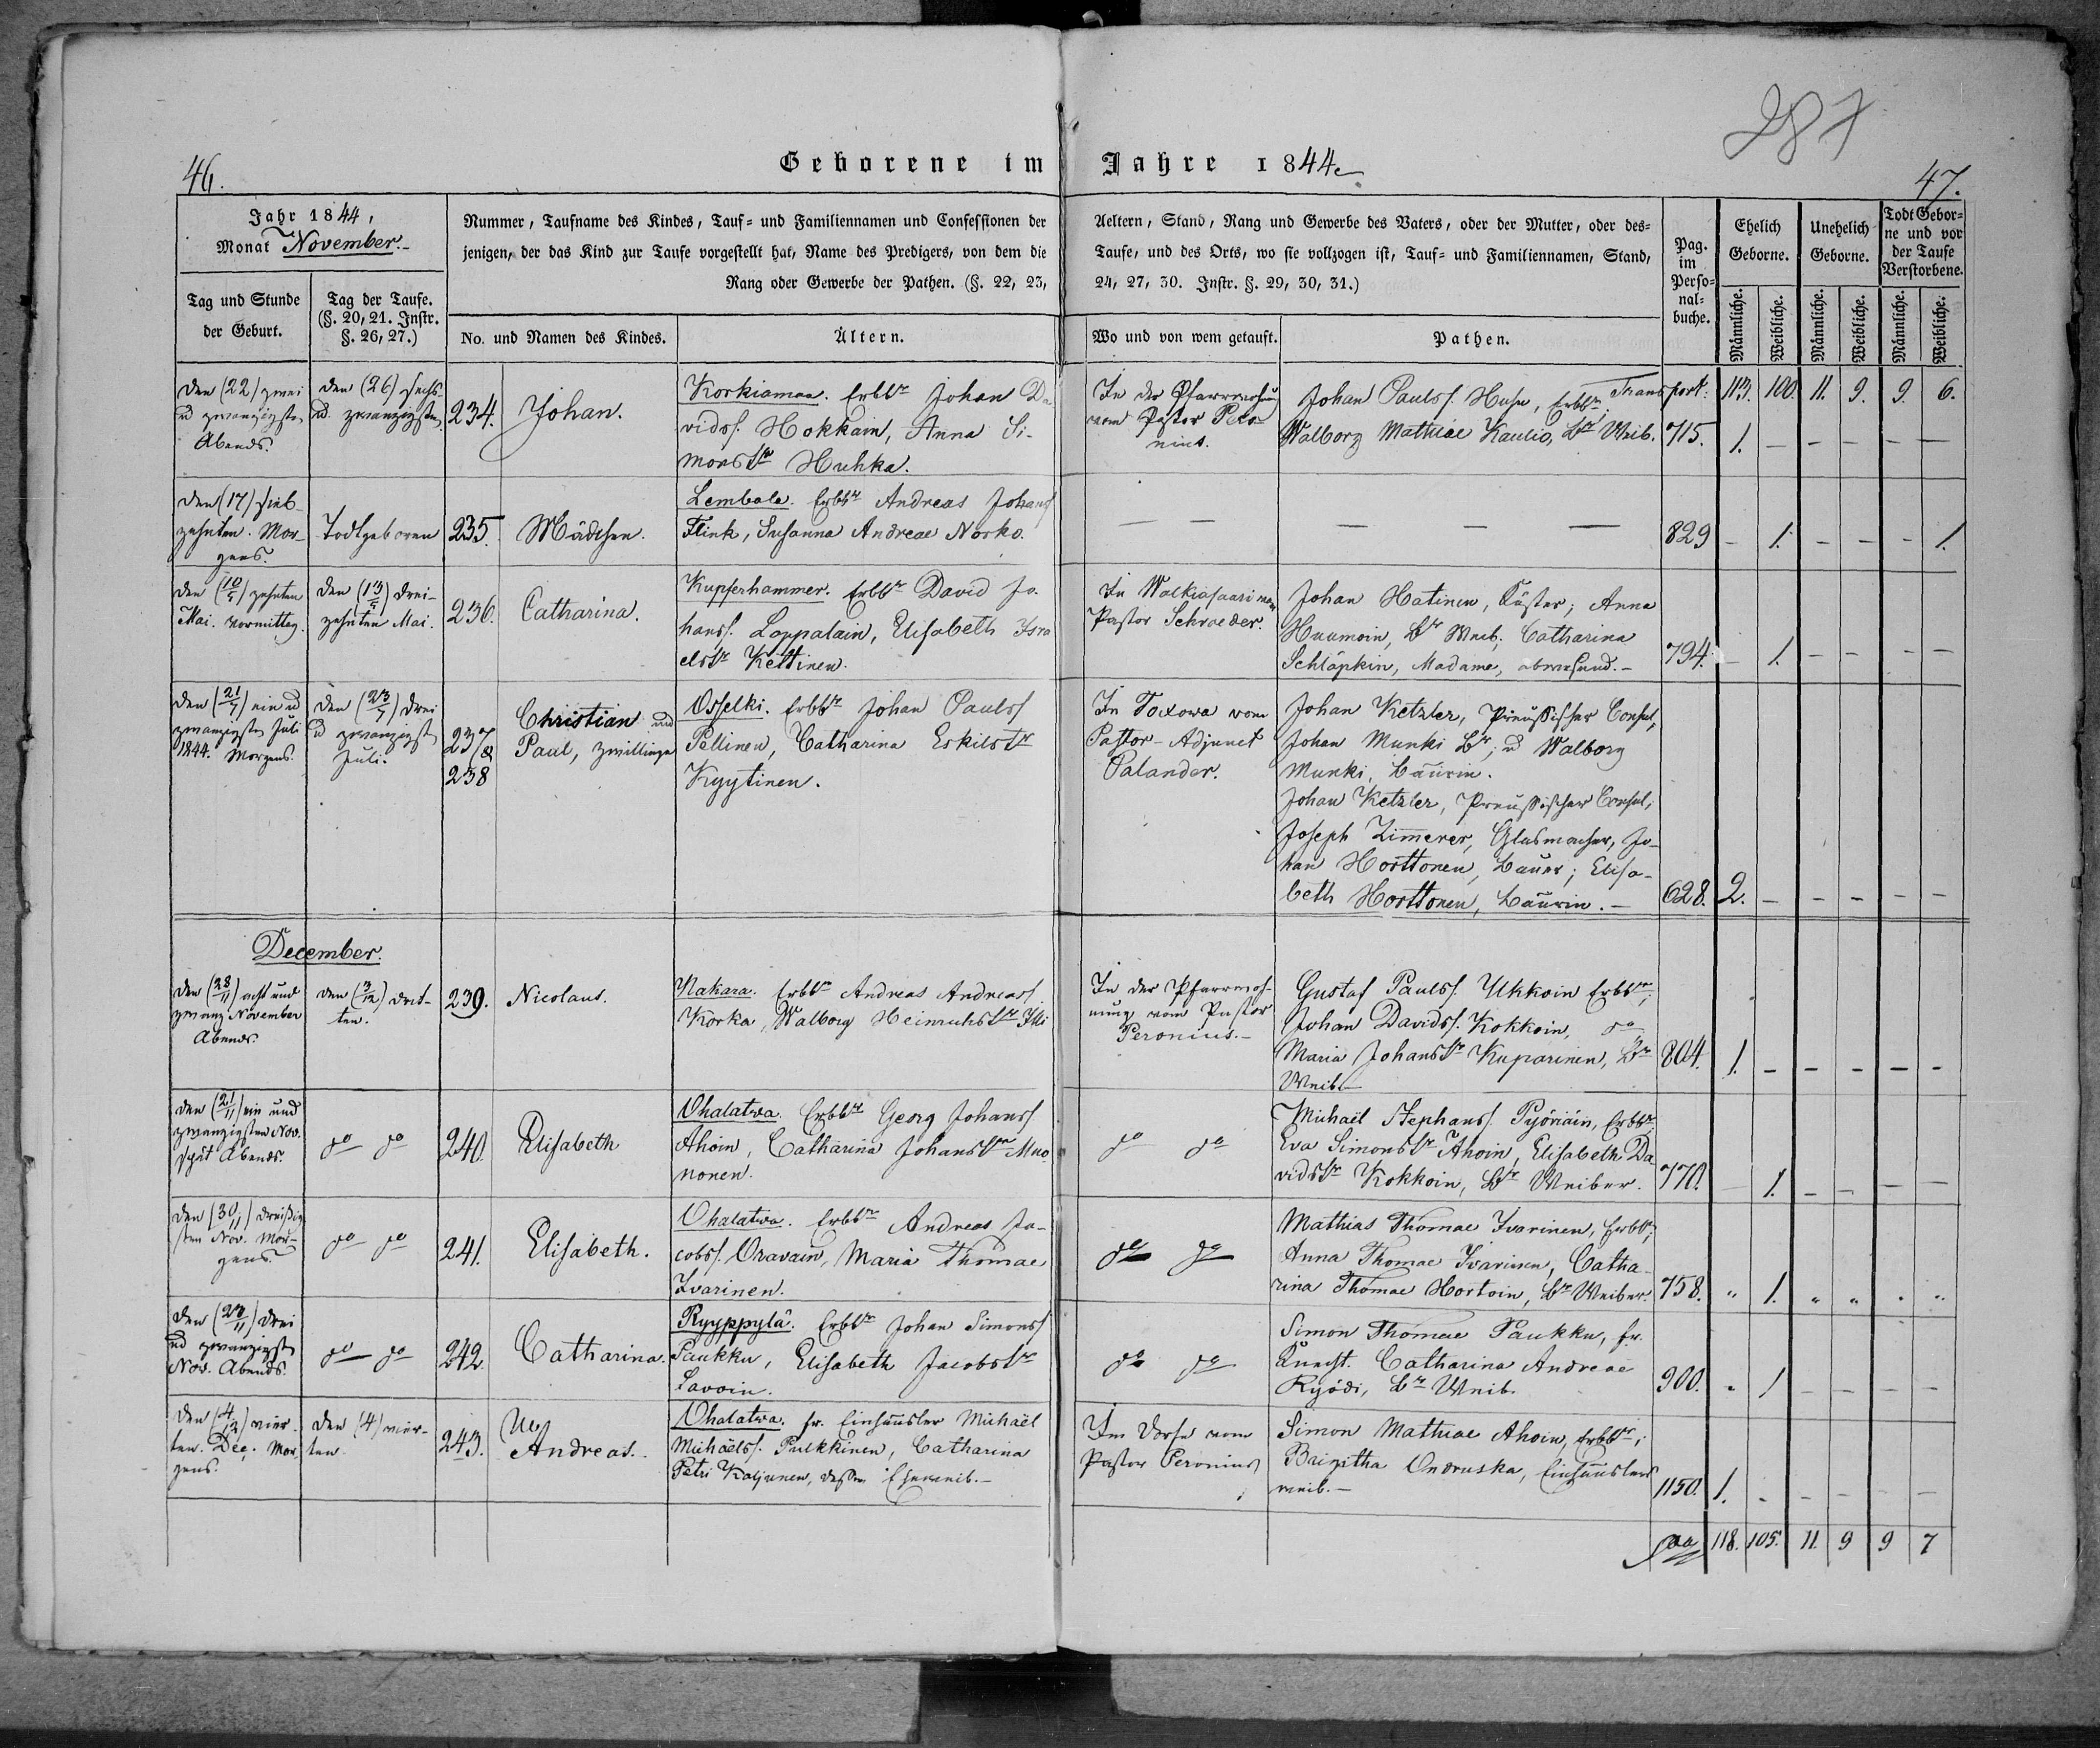 287
46.
Geborene im Jahre 1844
47.
Jahr 1844,
Monat November.
Nummer, Taufname des Kindes, Tauf= und Familiennamen und Confessionen der
jenigen, der das Kind zur Taufe vorgestellt hat, Name des Predigers, von dem die
Rang oder Gewerbe der Pathen. (§. 22, 23,
Aeltern, Stand, Rang und Gewerbe des Vaters, oder der Mutter, oder des=
Taufe, und des Orts, wo sie vollzogen ist, Tauf= und Familiennamen, Stand,
24, 27, 30. Instr. §. 29, 30, 31.)
Pag.
im
Perso=
nal=
buche.
Ehelich
Geborne.
Unehelich
Geborne.
Todt Gebor=
ne und vor
der Taufe
Verstorbene.
Tag und Stunde
der Geburt.
Tag der Taufe.
(§. 20, 21. Instr.
§. 26, 27.)
No. und Namen des Kindes.
Ältern.
Wo und von wem getauft.
Pathen.
Männliche.
Weibliche.
Männliche.
Weibliche.
Männliche.
Weibliche.
Transport: 113. 100. 11. 9. 9. 6.
den (22) zwei
u zwanzigsten
Abends.
den (26) sechs-
u. zwanzigsten
234.
Johan.
Korkiamaa. Erbbr Johan Da
vidss. Hokkain, Anna Si-
monstr Huhka.
In der
vom Pastor Pero-
nius.
Johan Paulss. Erbbr
Walborg Mathiae Kaulio, Br Weib.
715.
1. — — — — —
den (17) sieb-
zehnten. Mor-
gens.
Todtgeboren
235.
Mädchen.
Lembala. Erbbr Andreas Johanss
Flink, Susanna Andreae Norko.
— — — — —
829
— 1. — — — 1.
den (10/5) zehnten
Mai. vormittag.
den (13/5) drei-
zehnten Mai.
236.
Catharina.
Kupferhammer. Erbbr David Jo-
hanss. Loppalain, Elisabeth Isra
elstr Kettinen.
In Walkiasaari vom
Pastor Schroeder.
Johan Hatinen, Küster; Anna
Huumoin, Br Weib; Catharina
Schläpkin, Madame, abwesend. —
794.
— 1. — — — —
den (21/7) ein u
zwanzigsten Juli
1844. Morgens.
den (23/7) drei
u zwanzigst
Juli.
237 &
238
Christian und
Paul, Zwillinge
Osselki. Erbbr Johan Paulss
Pellinen, Catharina Eskilstr
Kyytinen.
In Toxowa vom
Pastor-Adjunct
Palander.
Johan Ketzler, Preußischer Consul,
Johan Munki Br, u Walborg
Munki, Bäurin.
Johan Ketzler, Preußischer Consul,
Joseph Zimmerer, Glasmacher, Jo-
han Horttonen, Bauer; Elisa-
beth Horttonen, Bäurin. —
628.
2. — — — — —
December.
den (28/11) acht und
zwanz November
Abends.
den (3/12) drit-
ten.
239.
Nicolaus.
Nakara. Erbbr Andreas Andreass
Korka, Walborg Heinrichstr
In der Pfarrwoh-
nung vom Pastor
Peronius. —
Gustaf Paulss. Ukkoin Erbbr,
Johan Davidss. Kokkoin, do
Maria Johanstr Kuparinen, Br
Weib
804.
1. — — — — —
den (21/11) ein und
zwanzigsten Nov.
spät Abends.
do do
240.
Elisabeth
Ohalatwa. Erbbr Georg Johanss
Ahoin, Catharina Johanstr Muo
nonen.
do do
Michaël Stephanss. Pyöriäin, Erbbr,
Eva Simonstr Ahoin, Elisabeth Da
vidstr Kokkoin, Br Weiber.
770.
— 1. — — — —
den (30/11) dreißig-
sten Nov. Mor-
gens.
do do
241.
Elisabeth.
Ohalatwa. Erbbr Andreas Ja-
cobss. Oravain, Maria Thomae
Ivarinen.
do do
Mathias Thomae Ivarinen, Erbbr;
Anna Thomae Ivarinen, Catha
rina Thomae Hortoin, Br Weiber.
758.
" 1. " " " "
den (23/11) drei
u zwanzigst
Nov. Abends.
do do
242.
Catharina.
Ryyppylä. Erbbr Johan Simonss
Paukku, Elisabeth Jacobstr
Savoin.
do do
Simon Thomae Paukku, fr.
Knecht. Catharina Andreae
Ryödi, Br Weib.
900.
" 1 — — — —
den (4/12) vier-
ten. Dec. Mor-
gens.
den (4) vier-
ten.
243.
Andreas.
Ohalatwa. fr. Einhäusler Michaël
Michaëlss. Pulkkinen, Catharina
Petri Kaljunen, dessen Eheweib. —
Im Dorfe vom
Pastor Peronius
Simon Mathiae Ahoin, Erbbr;
Brigitha Ondruska, Einhäuslers
weib. —
1150.
1. — — — — —
118. 105. 11. 9 9 7